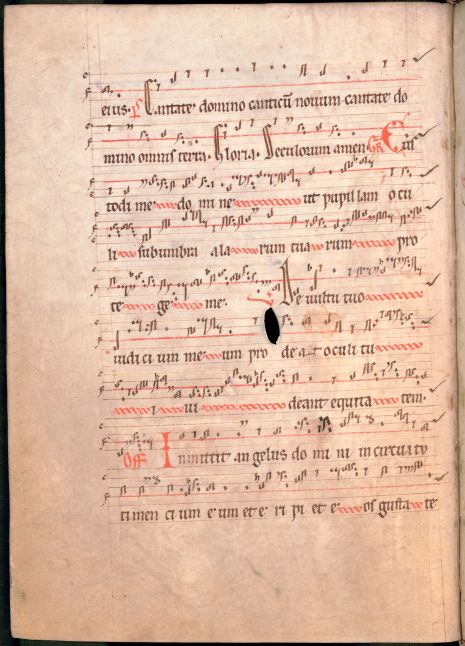 eius. ps Cantate domino canticū novum cantate do
mino omnis terra. Gloria. Seculorum amen. Gr̄ Cus
todi me do mi ne ut pupillam ocu
li sub umbra ala rum tua rum pro
te ge me. V De vultu tuo
iudi ci um me um pro de at oculi tu
i vi deant equita tem.
Off Inmittit an gelus do mi ni in circuitu
timen ci um e um et e ri pi et e os gusta te